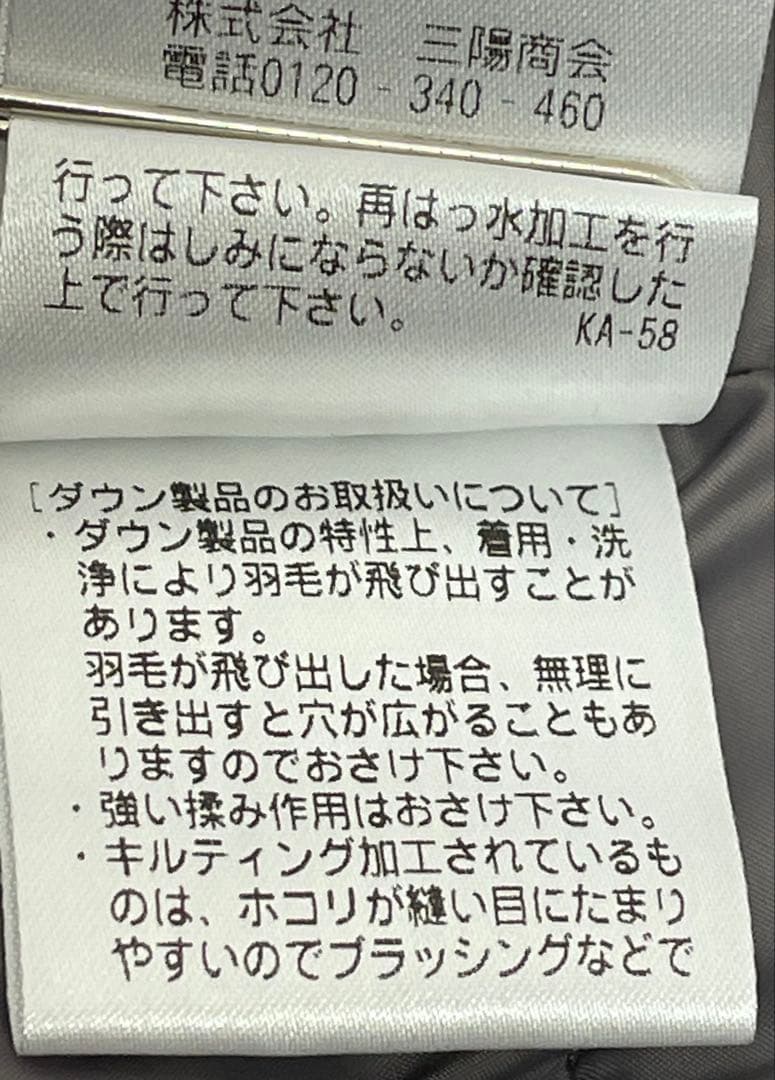 株式会社 三陽商会
電話0120-340-460
行って下さい。再はっ水加工を行
う際はしみにならないか確認した
上で行って下さい。
KA-58
[ダウン製品のお取扱いについて]
・ダウン製品の特性上、着用・洗
浄により羽毛が飛び出すことが
あります。
羽毛が飛び出した場合、無理に
引き出すと穴が広がることもあ
りますのでおさけ下さい。
・強い揉み作用はおさけ下さい。
・キルティング加工されているも
のは、ホコリが縫い目にたまり
やすいのでブラッシングなどで